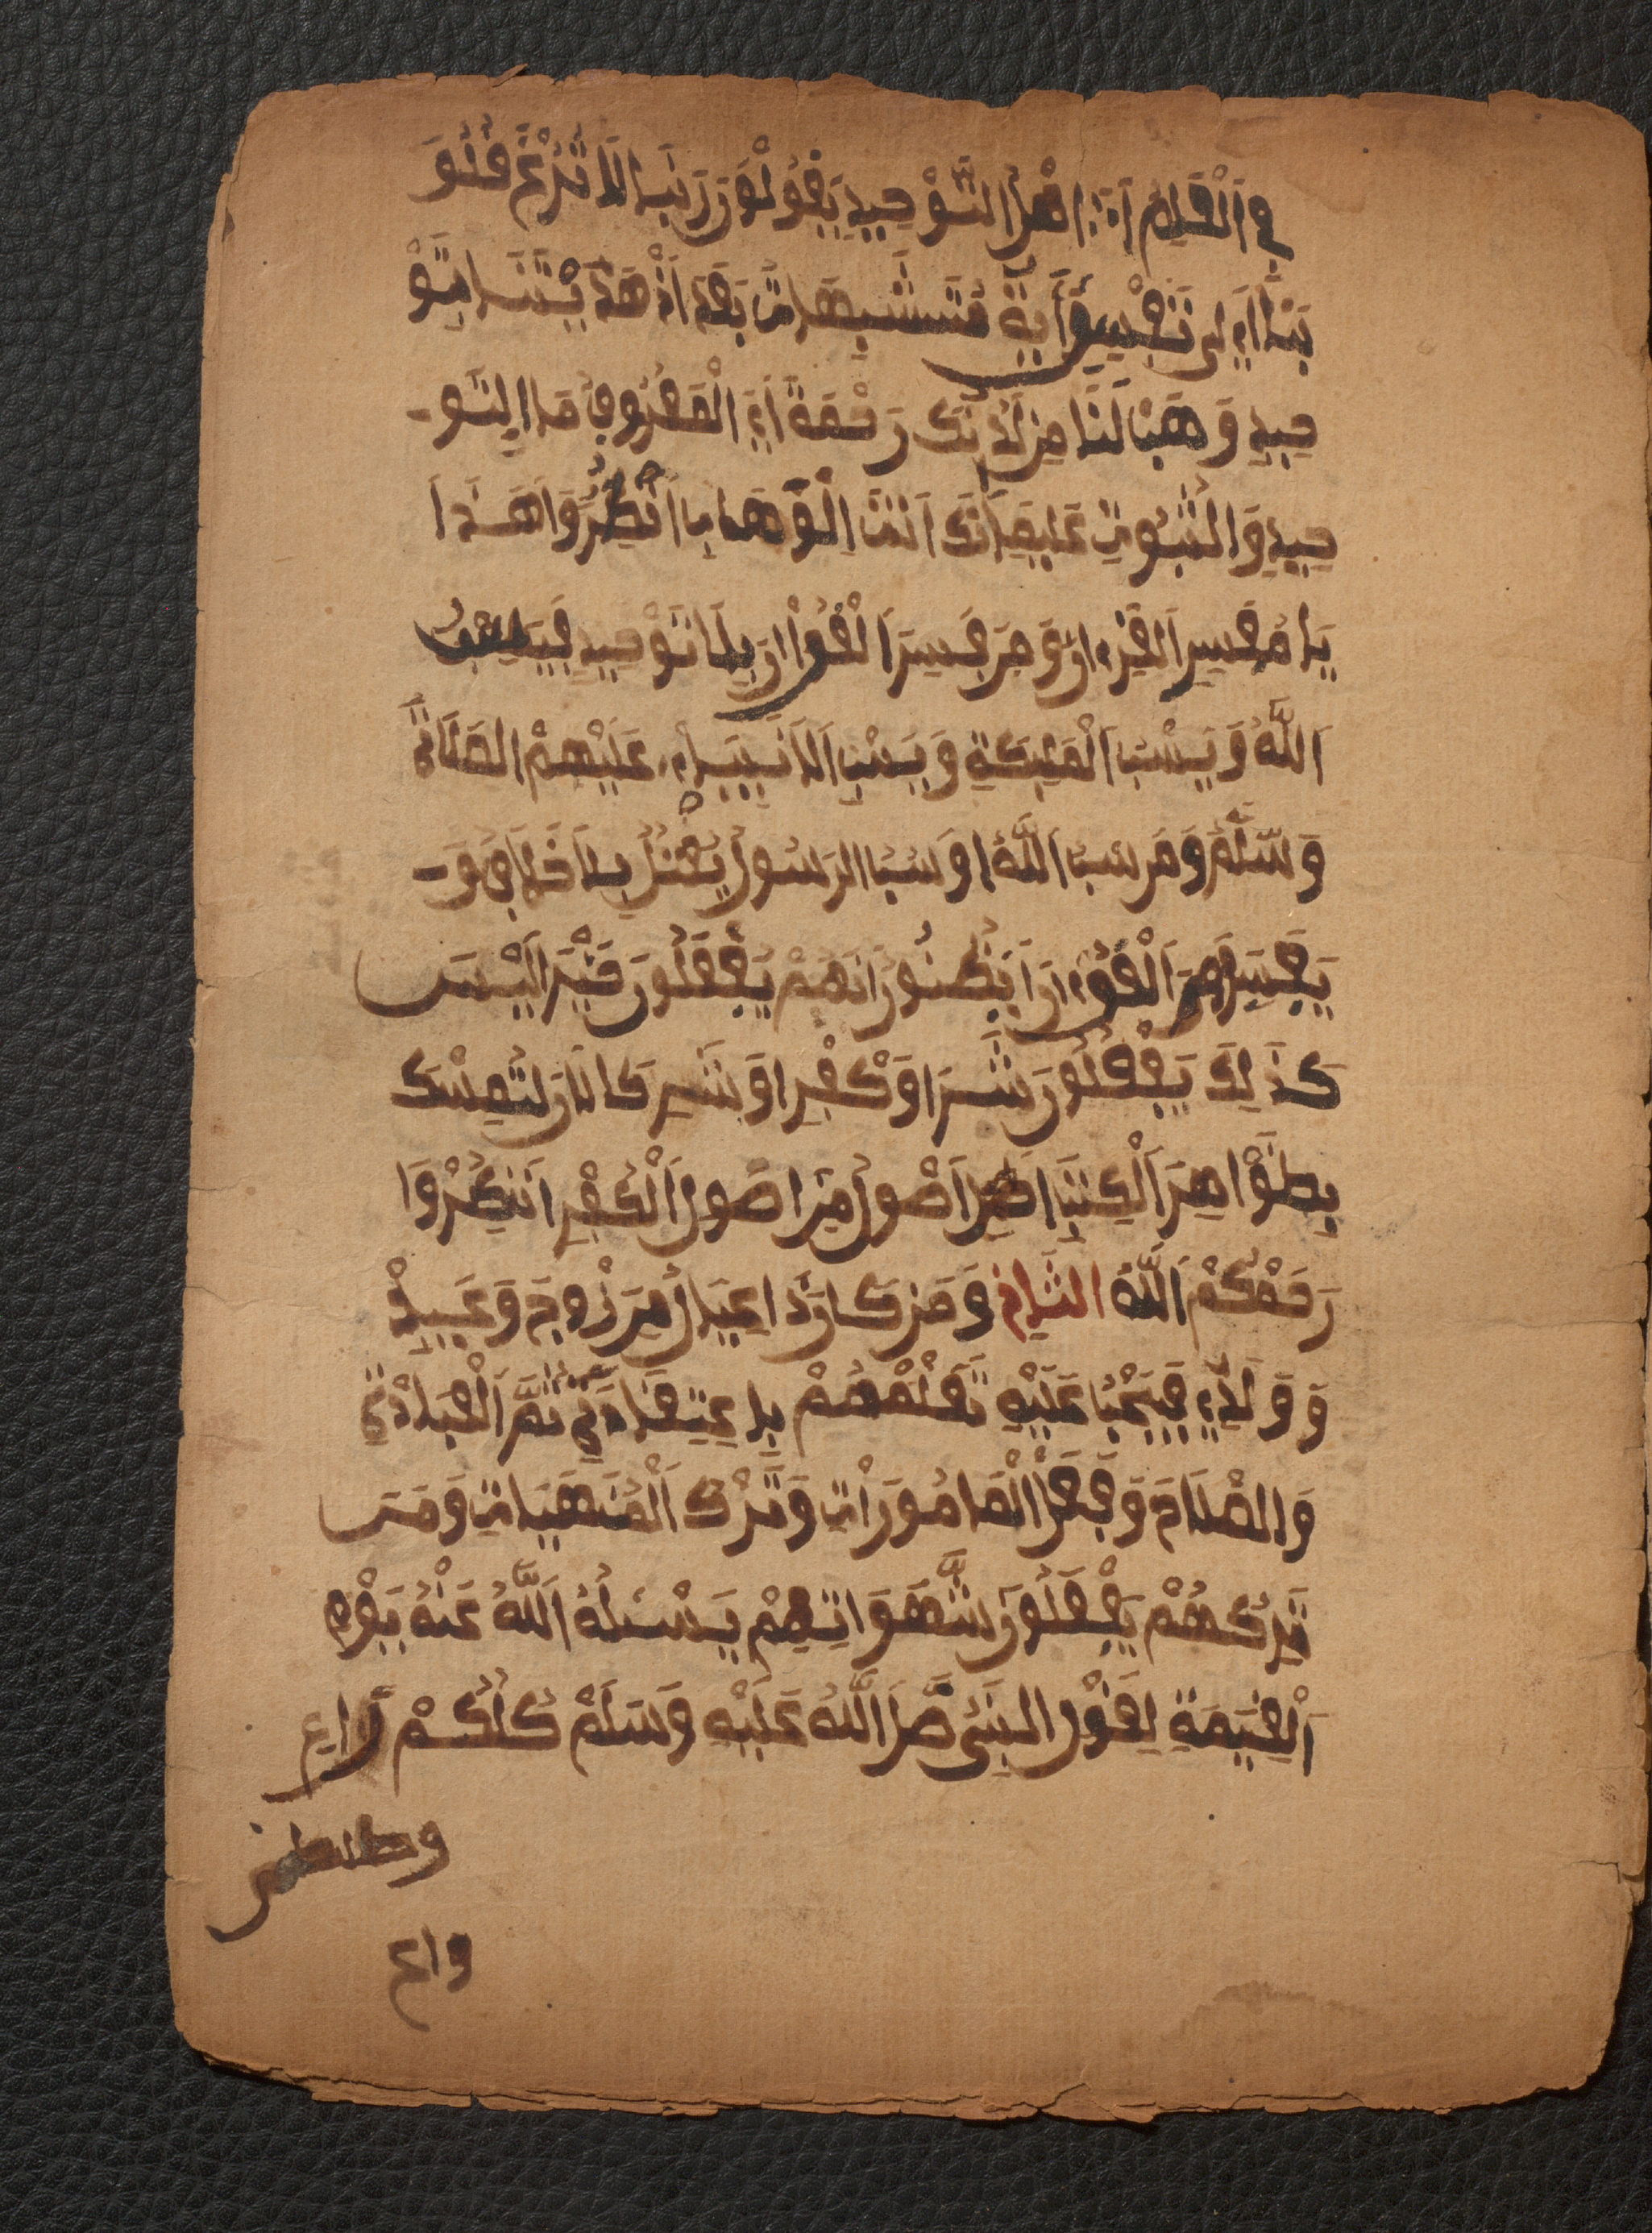 في الْقَلْمِ اَيْ اهْلُ التَّوْحِيدِ يَقُولُونَ رَبَّنَا لَا تُزْغَ قُلُوَ
بَنَا اَيْ لَى تَفْسِيرِ اَيَةْ مُتَشَبِهَاتِ بَعْدَ اَذْ هَدَيْتَنَا بِتَّوْ
حِيدِ وَهَبْ لَنَا مِن لَّدُنكَ رَحْمَةً اَيْ الْمَعْرُوفِ مَا التَّو
حِيدِ وَالثُّبُوتِ عَلَيْهِ اَنَّكَ اَنْتَ اَلْوَهَابُ اَنْظُرُوا هَذَا
يَا مُفَسِّرَ الْقُرْءَانِ وَمَن فَسِرَ الْقُرْءَانَ بِلَا تَوْحِيدِ فَيَسُبُّ
اَللَّهَ وَيَسُبُّ اَلْمَلَيِكَةِ وَيَسْبُ اَلْاَنْبِيَاءِ عَلَيْهِمْ الصَّلَاةُ
وَسَّلَّمُ وَمَن سَبَّ اللَّهُ اوَسَبَّ الرَسُولُ يُقْتَلُ بِلَا خِلَافِ وَ
يُفَسِّرُ الْقُرْءَانَ اَيَظُنُّونَ اَنَهُمْ يَفْعَلُونَ خَيْرًا لَيْسَ
كَذَلِكَ يَفْعَلُونَ شَرًا وَكُفْرًا وَشِرْكًا لِاَنَّ لتَّمَسُّكَ
بِظَوَاهِرَ اَلْكِتَبِ اَصْلُ اَصْولُ مِن اصُولِ اَلْكُفْرِ اَنْظُرُوا
رَحَمْكُمْ اَللَّهُ الثَّانِ وَمَن كَانَ ذَا عِيَالُ مِن زَوْجَ وَعَبِيدْ
وَوَلَدِ فَيَجْبُ عَلَيْهِ تَعَلْمُهُمْ بِلاِعْتِقَادِ ثُمَّ اَلْعِبَادَةِ
وَالصَّلَاةَ وَفِعْلُ اَلْمَامُورَاتِ وَتَّرْكَ اَلْمَنْهَيَاتِ وَمَن
تَّرَكَهُمْ يَفْعَلُونَ شَّهَوَاتِهِمْ يَسْئَلُهُ اَللَّهُ عَنْهُ يَوْمَ
اَلْقِيَمَةِ لِقَوْلِ النَّبِيِّ صَّلَ اَللَّهُ عَلَيْهِ وَسَلَمْ كُلُكُمْ رَاعِ
وكلكم
راع